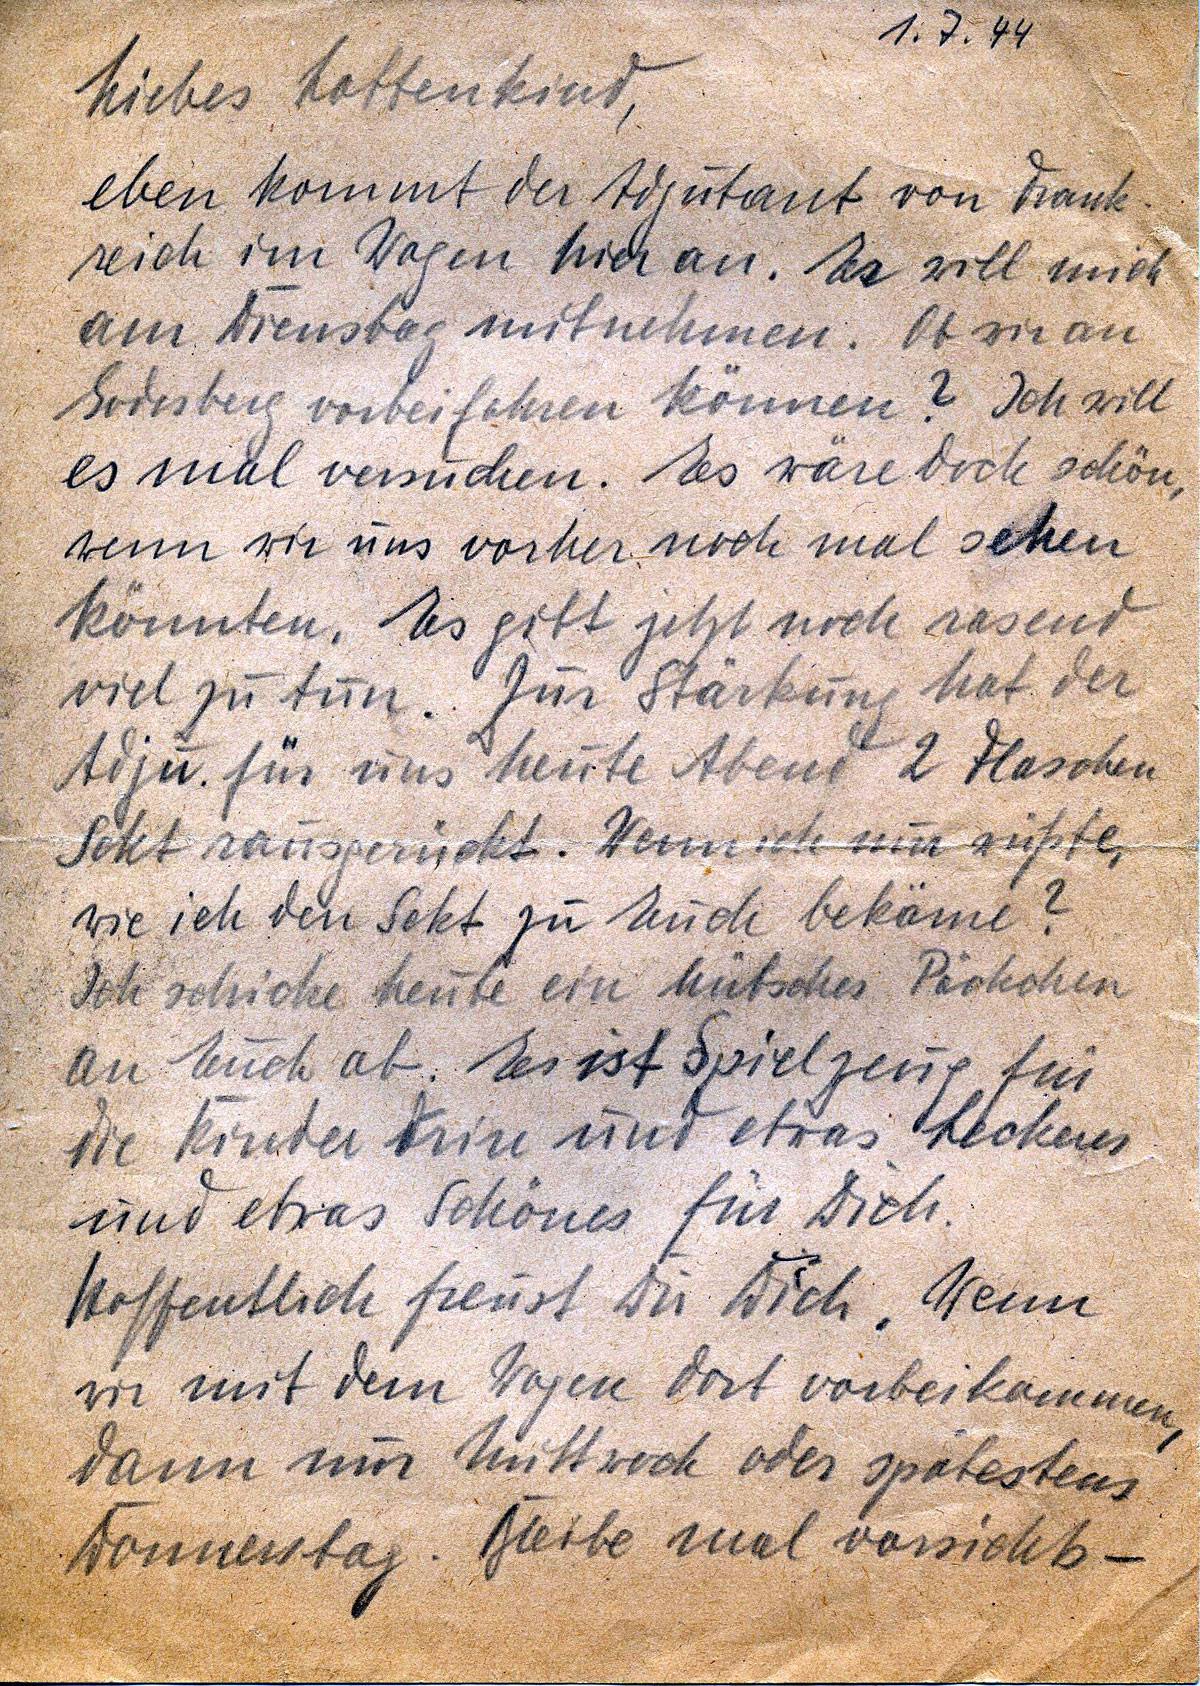 1.7.44
Liebes Lottenkind,
eben kommt der Adjutant von Frank-
reich im Wagen hier an. Er will mich
am Dienstag mitnehmen. Ob wir an
Godesberg vorbeifahren können? Ich will
es mal versuchen. Es wäre doch schön,
wenn wir uns vorher noch mal sehen
könnten. Es gibt jetzt noch rasend
viel zu tun. Zur Stärkung hat der
Adju. für uns heute Abend 2 Flaschen
Sekt rausgerückt. Wenn ich nur wüßte,
wie ich den Sekt zu Euch bekäme?
Ich schicke heute ein hübsches Päckchen
an Euch ab. Es ist Spielzeug für
die Kinder drin und etwas Leckeres
und etwas Schönes für Dich.
Hoffentlich freust Du Dich. Wenn
wir mit dem Wagen dort vorbeikommen,
dann nur Mittwoch oder spätestens
Donnerstag. Bleibe mal vorsichts-